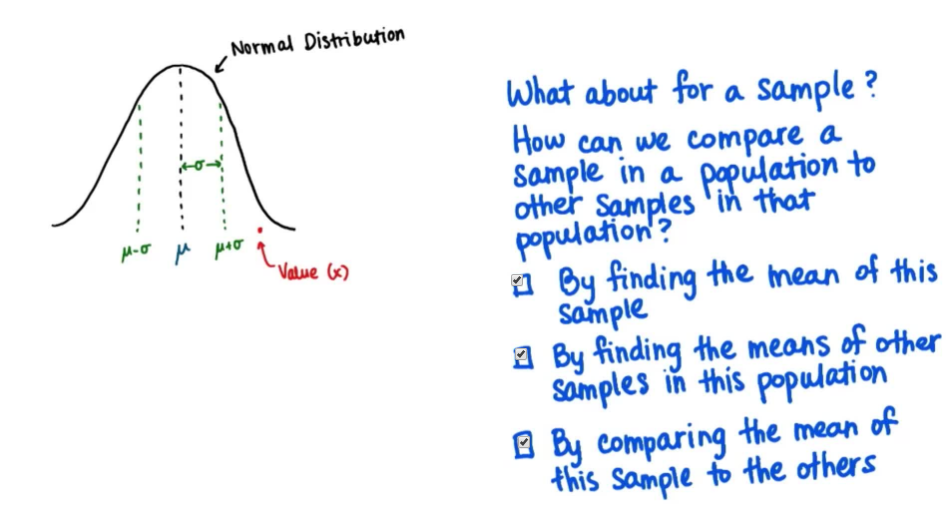 Normal Distribution
σ
μ-σ
μ
μ+σ
Value (x)
What about for a sample?
How can we compare a
sample in a population to
other samples in that
population?
By finding the mean of this
sample
By finding the means of other
samples in this population
By comparing the mean of
this sample to the others